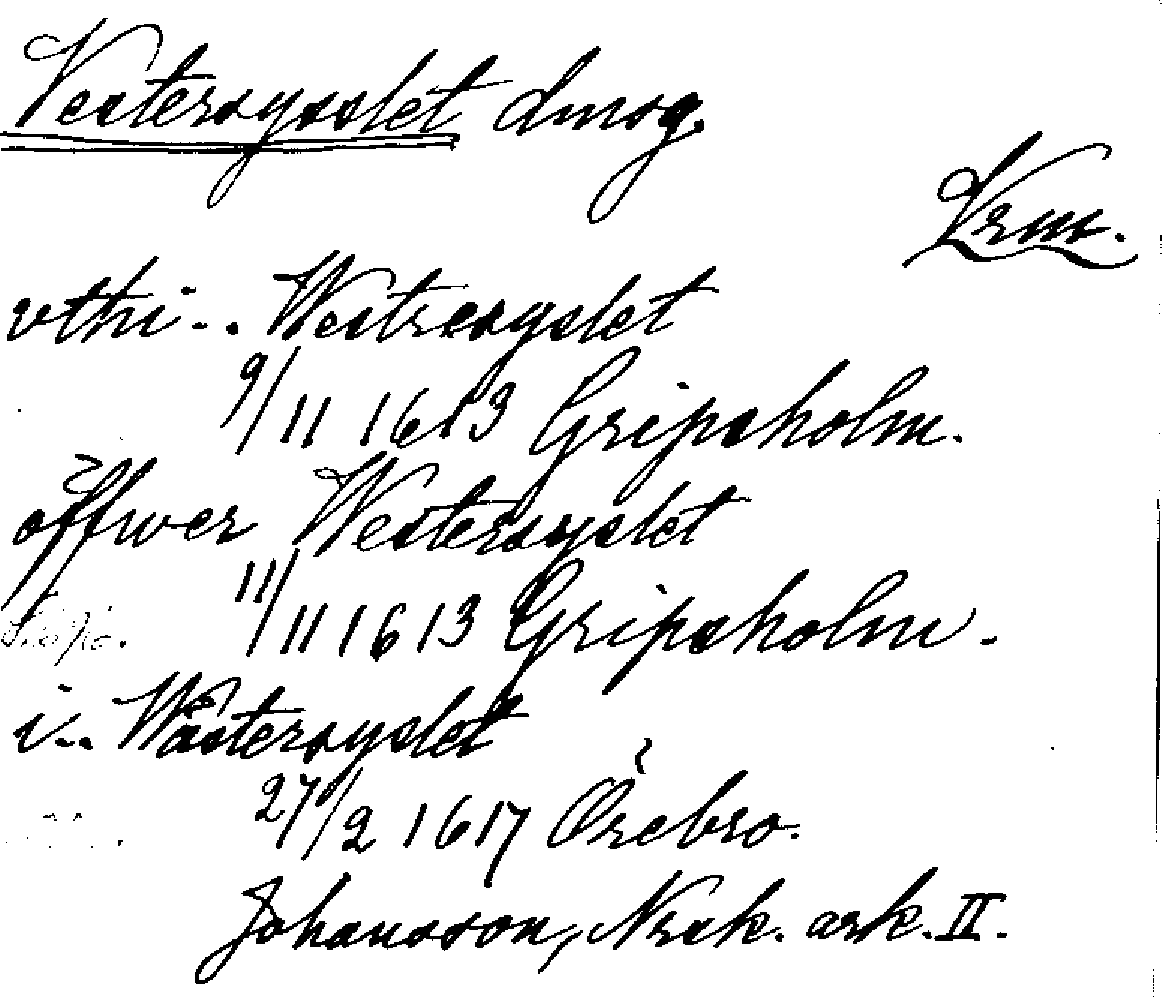 Vestersysslet dmsg.
Vrm.
vthi... Westresyslet
9/11 1613 Gripsholm.
öffwer Westersyslet
11/11 1613 Gripsholm.
i... Wästersyslet
27/2 1617 Örebro.
Johansson, Nrak. ark. II.